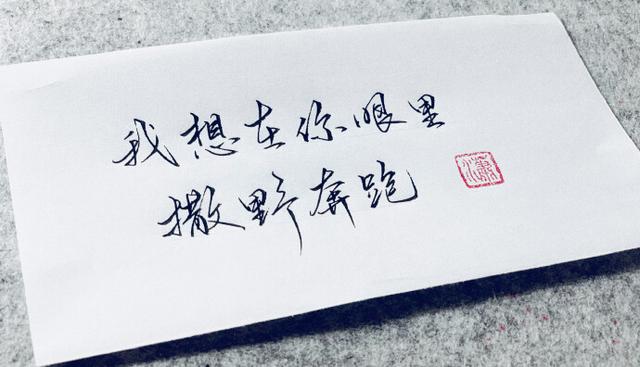 我想在你眼里
撒野奔跑